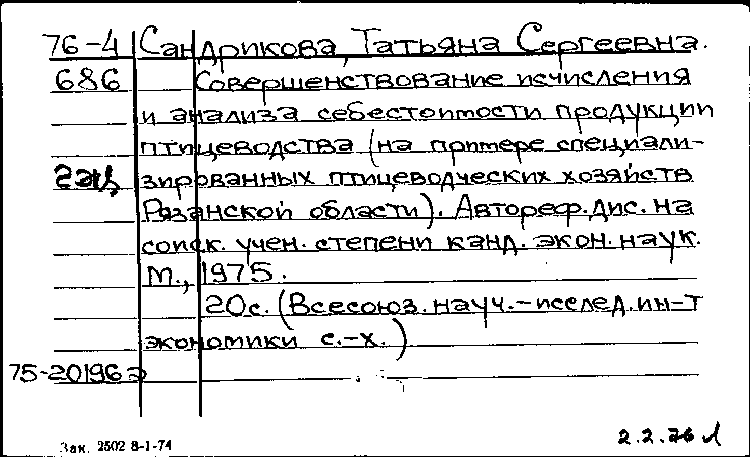 76-4 Сандрикова, Татьяна Сергеевна.
686 Совершенствование исчисления
и анализа себестоимости продукции
птицеводства (на примере специали-
2эц зированных птицеводческих хозяйств
Рязанской области). Автореф. дис. на
соиск. учен. степени канд. экон. наук.
М., 1975.
20с. (Всесоюз. науч.-исслед. ин-т
экономики с.-х.)
75-20196э
Зак. 2502 8-1-74
2.2.76 л